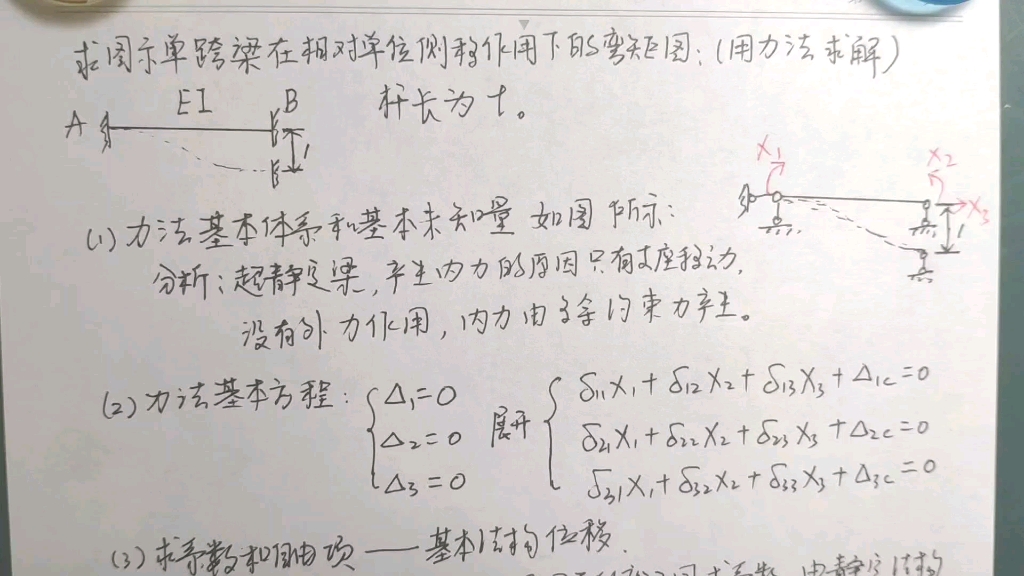 求图示单跨梁在相对单位侧移作用下的弯矩图：(用力法求解)
A EI B 杆长为t。
1
X1 X2
X3
1
(1) 力法基本体系和基本未知量 如图所示：
分析：超静定梁，产生内力的原因只有支座移动，
没有外力作用，内力由多余约束力产生。
(2) 力法基本方程： Δ1=0 展开 δ11X1+δ12X2+δ13X3+Δ1c=0
Δ2=0 δ21X1+δ22X2+δ23X3+Δ2c=0
Δ3=0 δ31X1+δ32X2+δ33X3+Δ3c=0
(3) 求系数和自由项——基本结构位移.
由静定结构